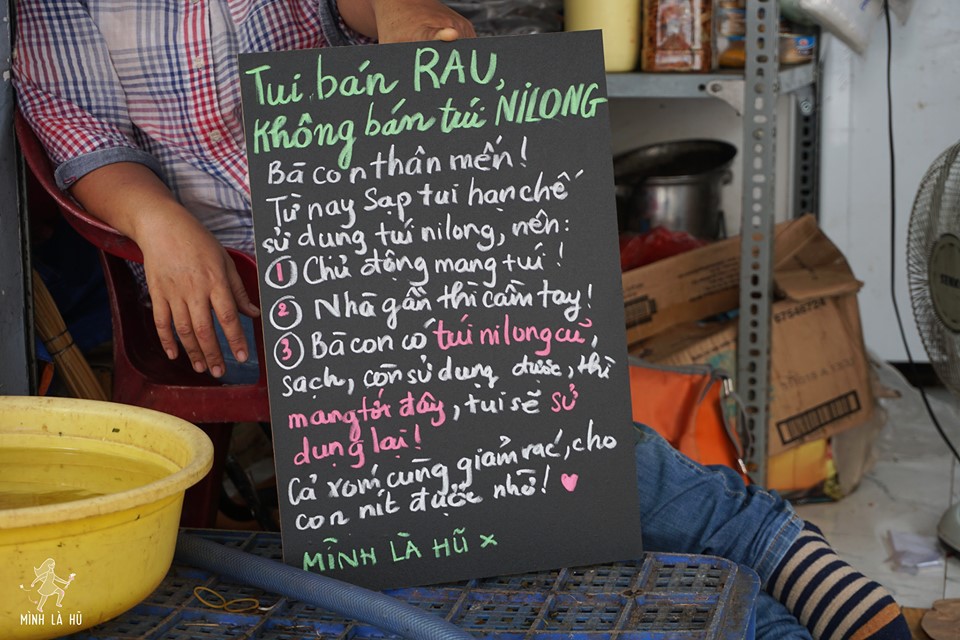 Tui bán RAU,
Không bán túi NILONG
Bà con thân mến!
Từ nay Sạp tui hạn chế
sử dụng túi nilong, nên:
① Chủ động mang túi!
② Nhà gần thì cầm tay!
③ Bà con có túi nilong cũ,
sạch, còn sử dụng được, thì
mang tới đây, tui sẽ sử
dụng lại!
Cả xóm cùng giảm rác, cho
con nít được nhờ! ♥
MÌNH LÀ HŨ x
MÌNH LÀ HŨ